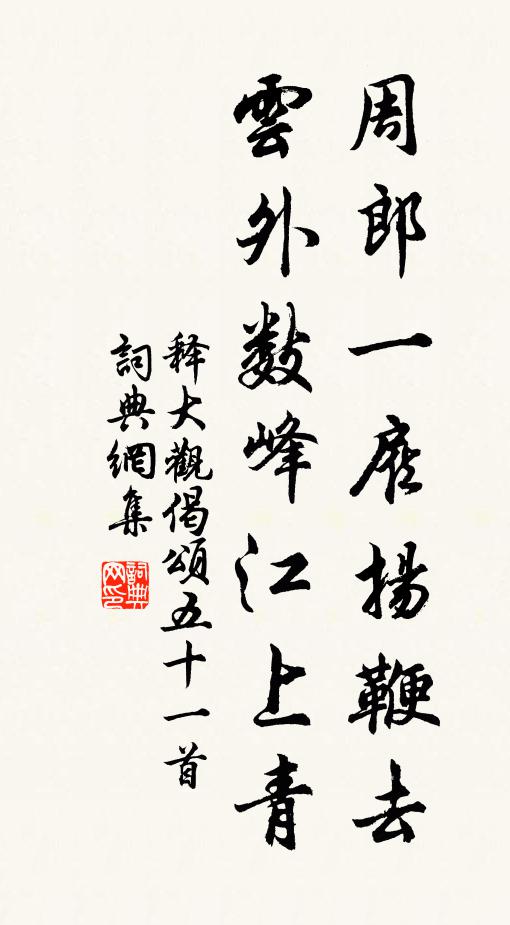 周郎一揚鞭去
雲外数峰江上青
释大觀偈頌五十一首
詞典網集
詞典
网印